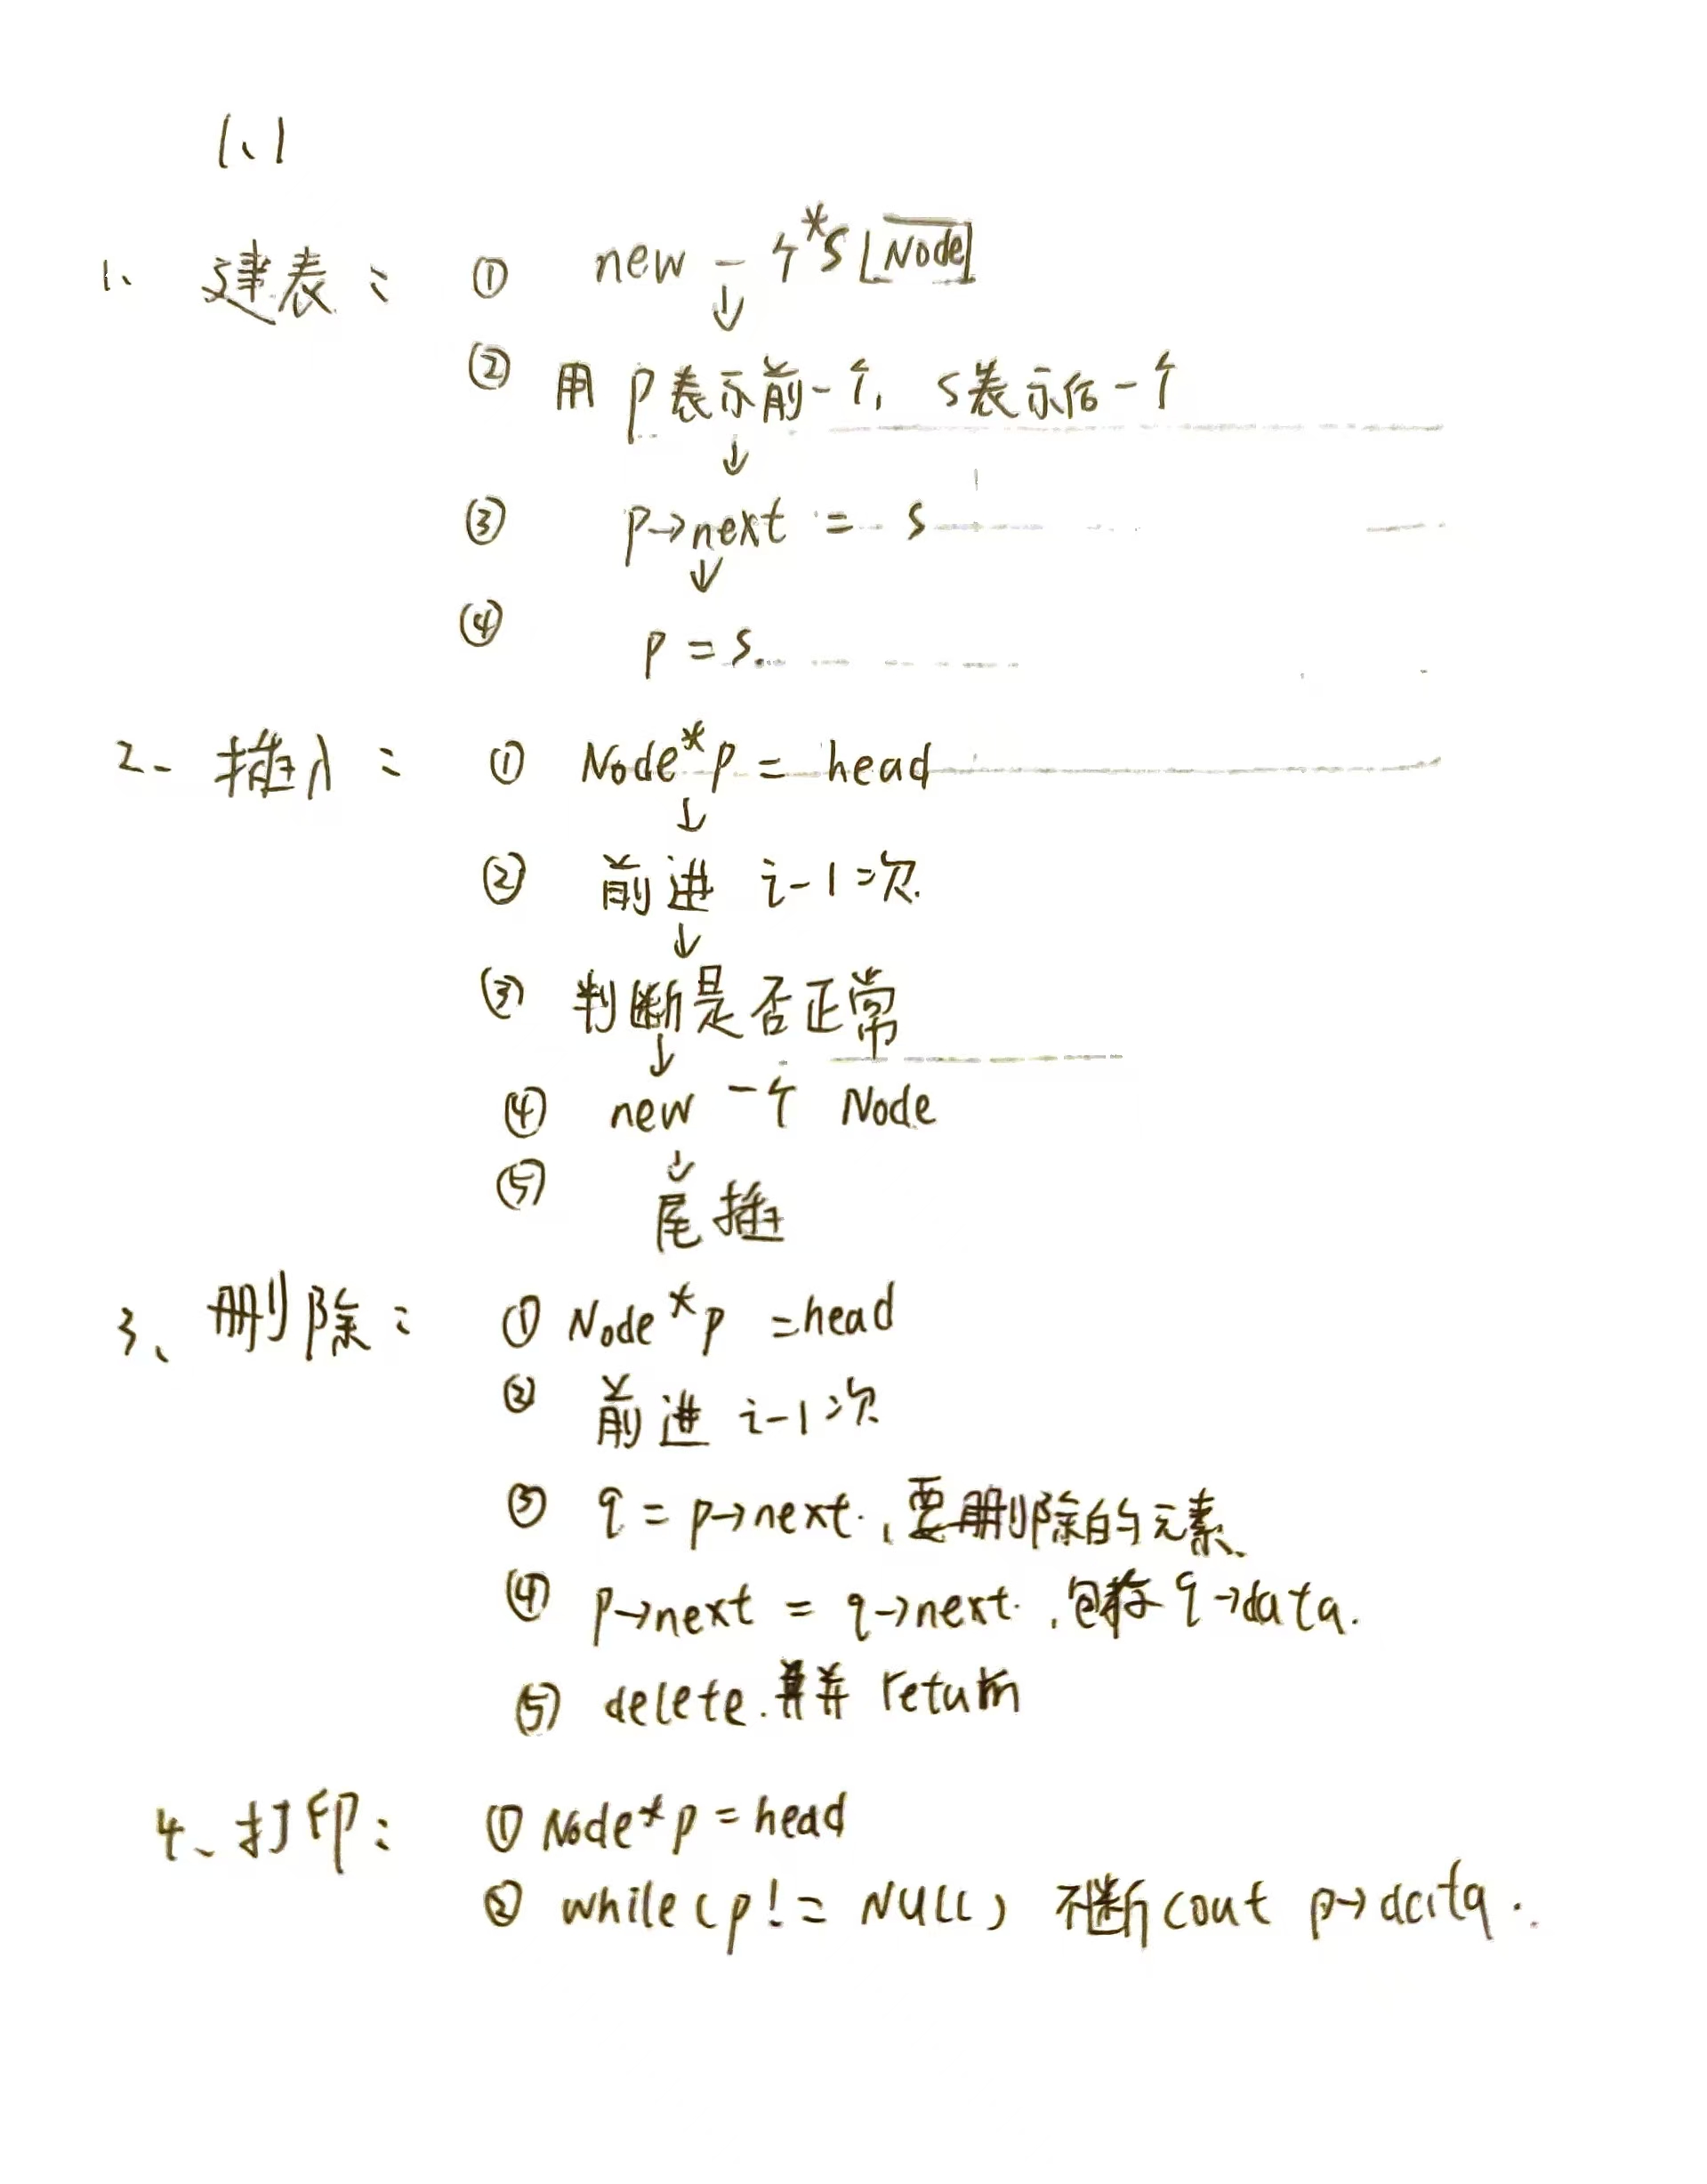 1、1
1、 建表： ① new 一个*s [Node]
↓
② 用 p表示前一个, s表示后一个
↓
③ p→next = s
↓
④ p = s.
2- 插入： ① Node*p = head
↓
② 前进 i-1次.
↓
③ 判断是否正常
↓
④ new 一个 Node
↓
⑤ 尾插
3、删除： ① Node*p =head
② 前进 i-1次
③ q = p→next. , 要删除的元素、
④ p→next = q→next. , 存 q→data.
⑤ delete. 并 return
4、打印： ① Node*p = head
② while(p!= NULL) 不断cout p→data..